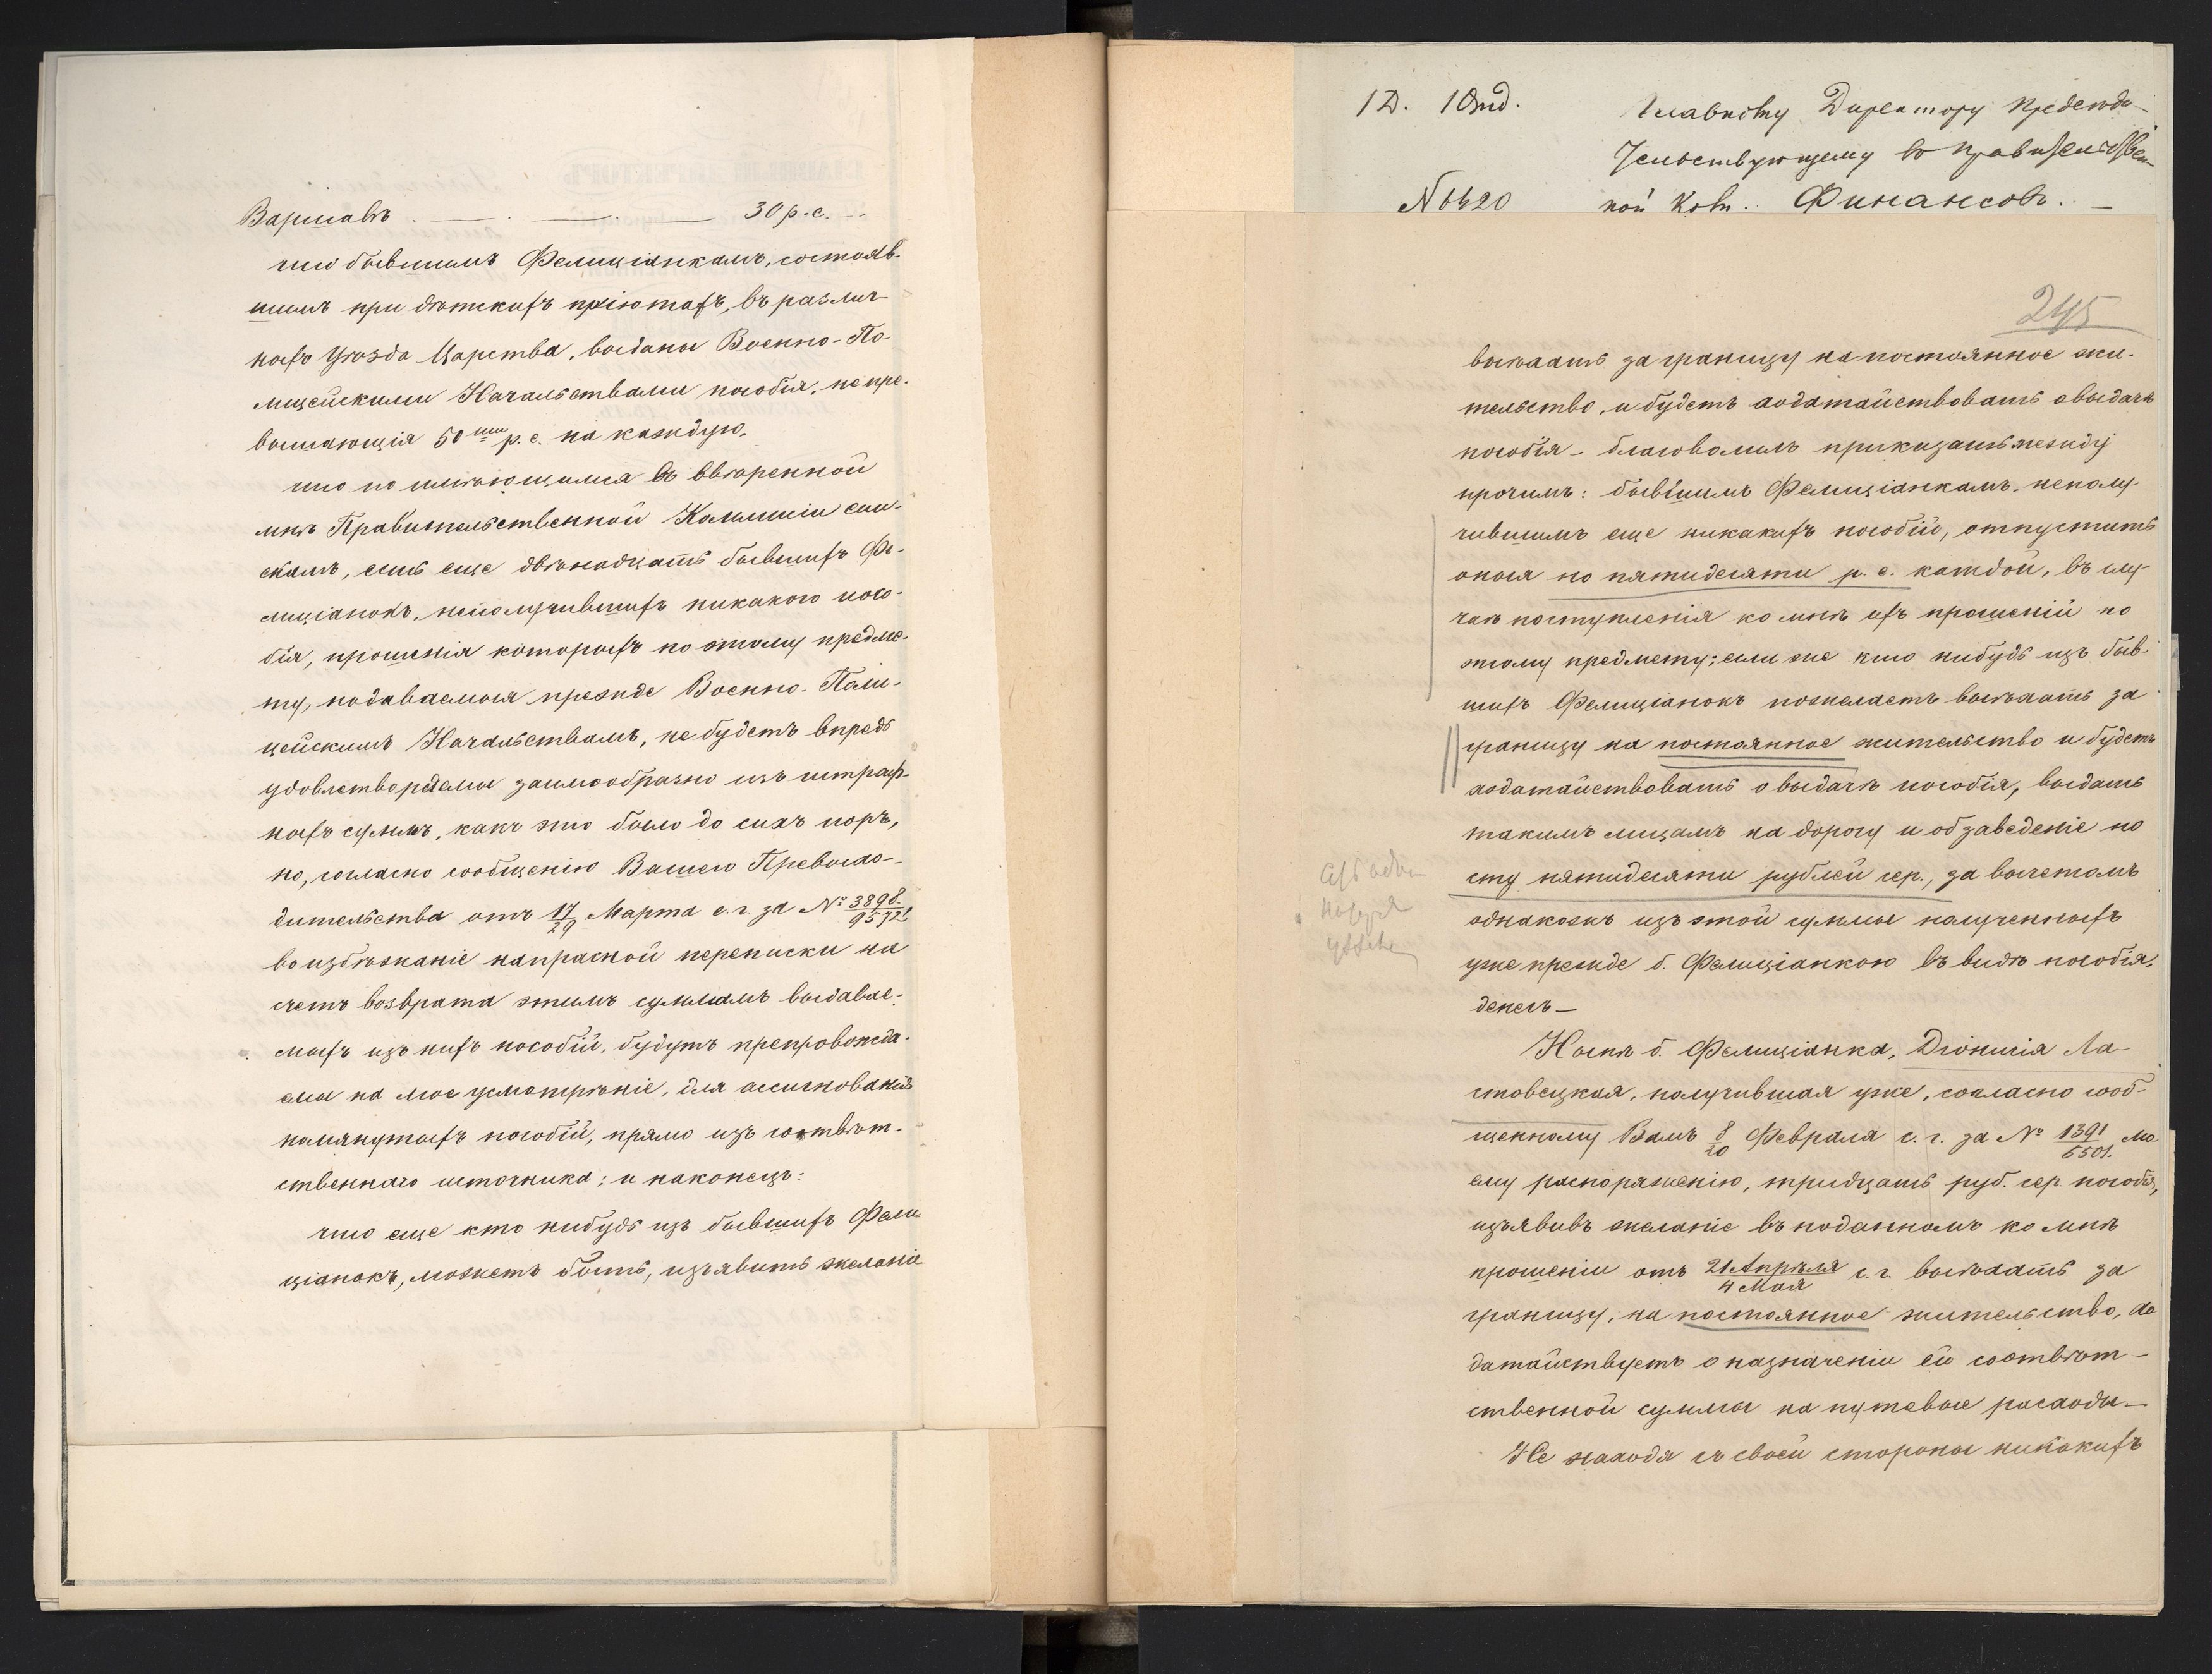 Варшавѣ . — . — . — 30 р. с. —
что бывшимъ Фелиціанкамъ, состояв-
шимъ при дѣтскихъ пріютахъ, въ различ-
ныхъ Уѣздахъ Царства, выданы Военно-По-
лицейскими Начальствами пособія, не пре-
вышающія 50ти р. с. на каждую,
что по имѣющимся въ ввѣренной
мнѣ Правительственной Коммисіи спи-
скамъ, есть еще двѣнадцать бывшихъ Фе-
лиціанокъ, неполучившихъ никакого посо-
бія, прошенія которыхъ по этому предме-
ту, подаваемыя прежде Военно-Поли-
цейскимъ Начальствамъ, не будетъ впредь
удовлетворяемы заимообразно изъ штраф-
ныхъ суммъ, какъ это было до сихъ поръ,
но, согласно сообщенію Вашего Превосхо-
дительства отъ 17/29 Марта с. г. за № 3898/9572
во избѣжаніе напрасной переписки на
счетъ возврата этимъ суммамъ выдавае-
мыхъ изъ нихъ пособій, будутъ препровожда-
емы на мое усмотрѣніе, для ассигнованія
помянутыхъ пособій, прямо изъ соотвѣт-
ственнаго источника; и наконецъ:
что еще кто нибудь изъ бывшихъ Фели-
ціанокъ, можетъ быть, изъявитъ желаніе
1 Д. 1 Отд.
Главному Директору Предсѣда-
тельствующему въ Правительствен-
ной Ком. Финансовъ. —
№ 6420
245
выѣхать за границу на постоянное жи-
тельство, и будетъ ходатайствовать о выдачѣ
пособія — благоволилъ приказать между
прочимъ: бывшимъ Фелиціанкамъ, неполу-
чившимъ еще никакихъ пособій, отпустить
оныя по пятидесяти р. с. каждой, въ слу-
чаѣ поступленія ко мнѣ ихъ прошеній по
этому предмету; если же кто нибудь изъ быв-
шихъ Фелиціанокъ пожелаетъ выѣхать за
границу на постоянное жительство и будетъ
ходатайствовать о выдачѣ пособія, выдать
такимъ лицамъ на дорогу и обзаведеніе по
сту пятидесяти рублей сер., за вычетомъ
однакожъ изъ этой суммы полученныхъ
уже прежде б. Фелиціанкою въ видѣ пособія,
денегъ —
Нынѣ б. Фелиціанка, Діонисія Ла-
стовецкая, получившая уже, согласно сооб-
щенному Вамъ 8/20 Февраля с. г. за № 1391/5501. мо-
ему распоряженію, тридцать руб. сер. пособія,
изъявивъ желаніе въ поданномъ ко мнѣ
прошеніи отъ 21 Апрѣля/4 Мая с. г. выѣхать за
границу, на постоянное жительство, хо-
датайствуетъ о назначеніи ей соотвѣт-
ственной суммы на путевые расходы. —
Не находя съ своей стороны никакихъ